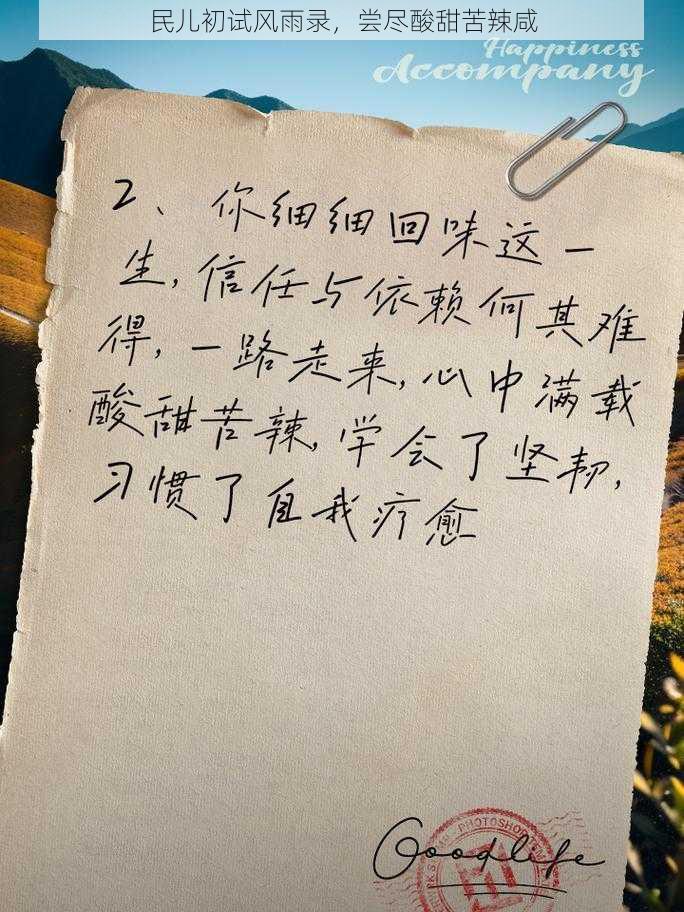 民儿初试风雨录，尝尽酸甜苦辣咸
Happiness
Accompany
2、你细细回味这一
生,信任与依赖何其难
得,一路走来,心中满载
酸甜苦辣,学会了坚韧,
习惯了自我疗愈
PHOTOSHOP
Goodlife